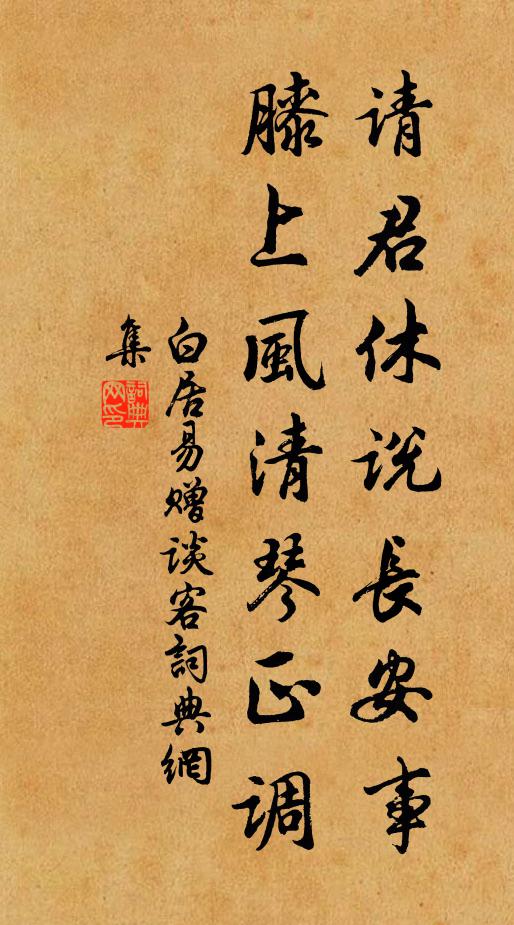 请君休说長安事
膝上風清琴正调
白居易赠谈客詞典網
集
詞典网印